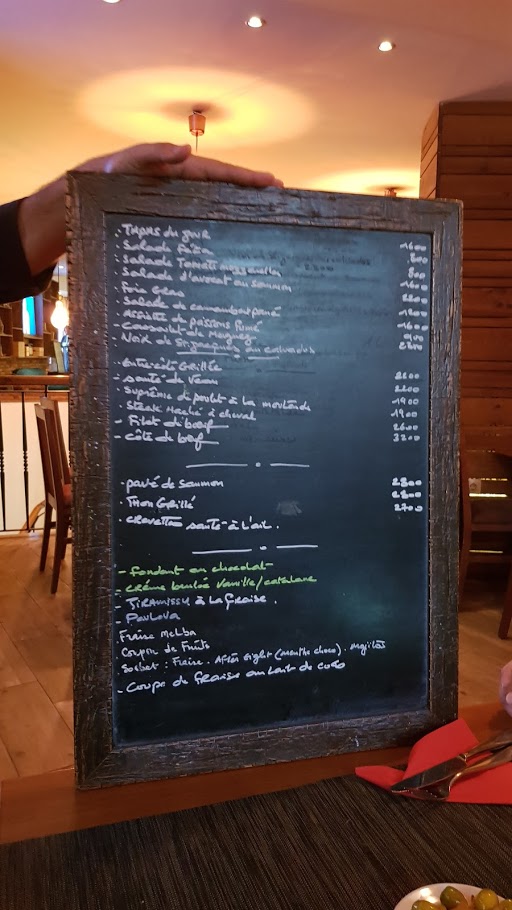 . THAMS du jour 1600
. Salade Feta 800
. Salade Tomate mozzarella 800
. Salade d'avocat au saumon 1600
. Foie Gras 2200
. Salade de camembert pané 1800
. Assiette de poissons fumé 1600
- de
Noix de St. Jacques au calvados 2800
. Entrecôte Grillée 2200
- sauté de veau 2200
. Suprême de poulet à la moutarde 1900
. Steak Haché à cheval 1900
- Filet de bœuf 2600
- Côte de bœuf 3200
. pavé de saumon 2800
. Thon Grillé 2800
. crevettes sauté à l'ail . 2700
- fondant au chocolat -
- crème brulée Vanille/catalane
- TiRAMiSSU à La fraise .
- PavLova
. Fraise MeLba
Coupe de Fruits
Sorbet : Fraise . After Eight (menthe choco) . Mojitos
- Coupe de fraise au lait de coco